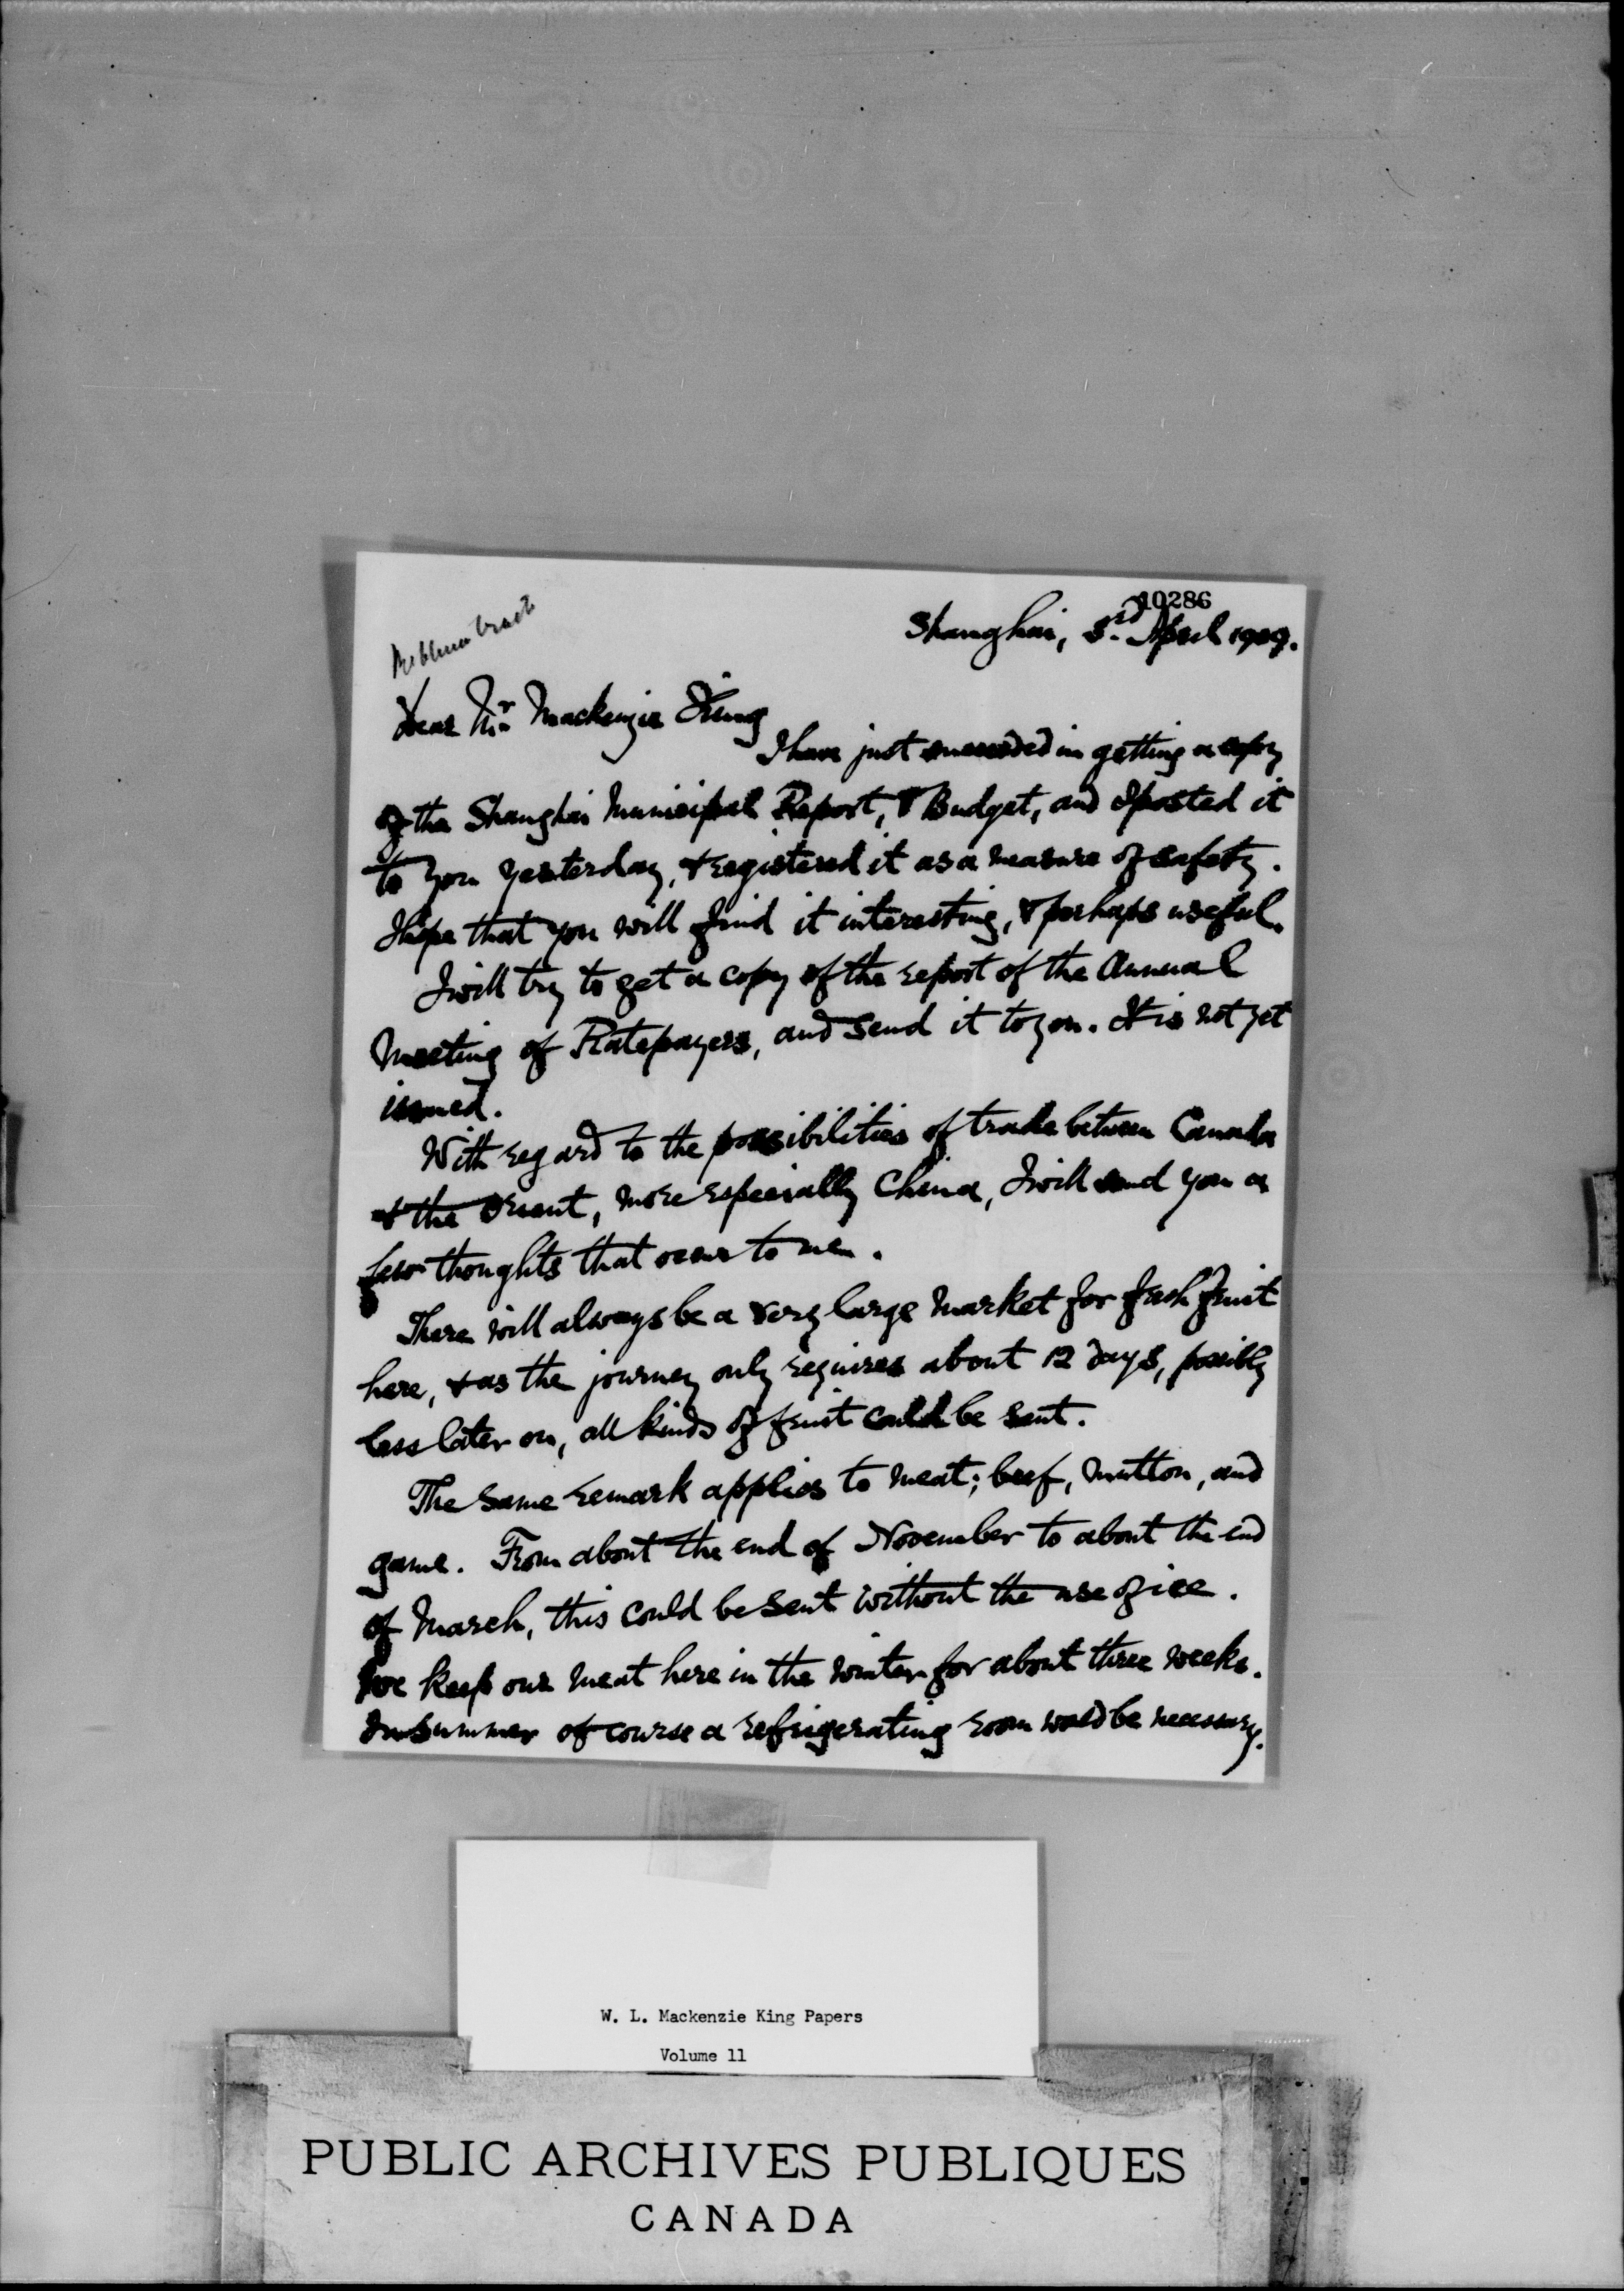 10286
Shanghai, 3rd April 1909.
Dear Mr Mackenzie King
I have just succeeded in getting a copy
of the Shanghai Municipal Report, & Budget, and I posted it
to you yesterday, & registered it as a measure of safety.
I hope that you will find it interesting, & perhaps useful.
I will try to get a copy of the report of the Annual
Meeting of Ratepayers, and send it to you. It is not yet
issued.
With regard to the possibilities of trade between Canada
& the Orient, more especially China, I will send you a
few thoughts that occur to me.
There will always be a very large market for fresh fruit
here, & as the journey only requires about 12 days, possibly
less later on, all kinds of fruit could be sent.
The same remark applies to meat; beef, mutton, and
game. From about the end of November to about the end
of March, this could be sent without the use of ice.
We keep our meat here in the winter for about three weeks.
In summer of course a refrigerating room would be necessary.
W. L. Mackenzie King Papers
Volume 11
PUBLIC ARCHIVES PUBLIQUES
CANADA